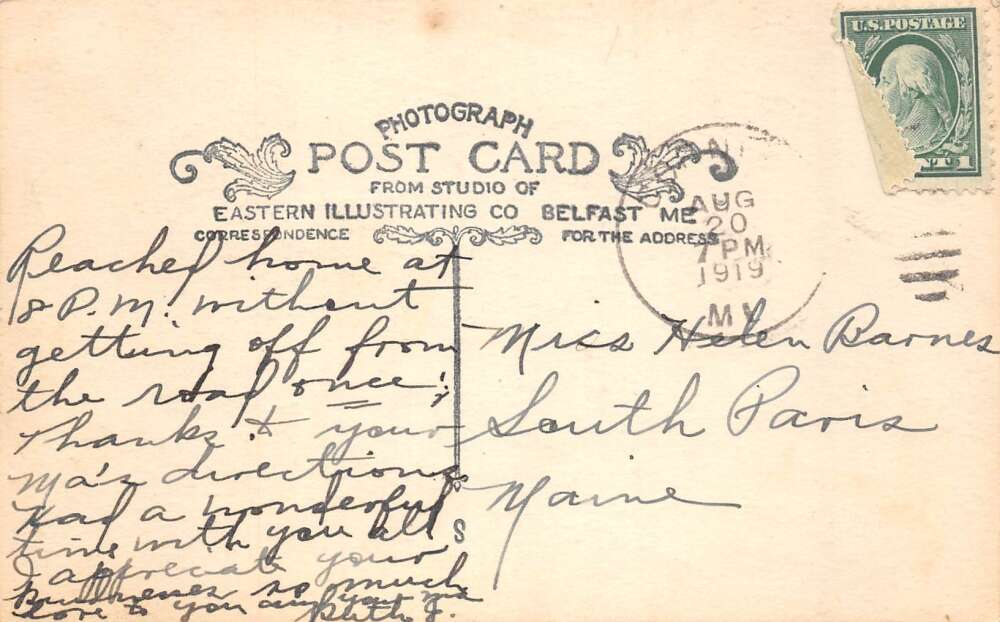 U.S. POSTAGE
NT 1
PHOTOGRAPH
POST CARD
FROM STUDIO OF
EASTERN ILLUSTRATING CO BELFAST ME
CORRESPONDENCE
FOR THE ADDRESS
AUG
20
7 PM
1919
Reached home at
8 P.M. without
getting off from
the road once;
thanks to your
Ma's directions
Had a wonderful
time with you all
I appreciate your
kindnesses so much
Love to you and your ma
Ruth J.
S
Miss Helen Barnes
South Paris
Maine